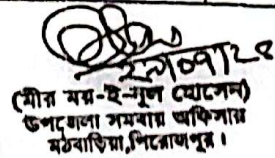 ২৮/০৭/২৪
(মীর ময়-ই-নূল হোসেন)
উপজেলা সমবায় অফিসার
মঠবাড়িয়া, পিরোজপুর।